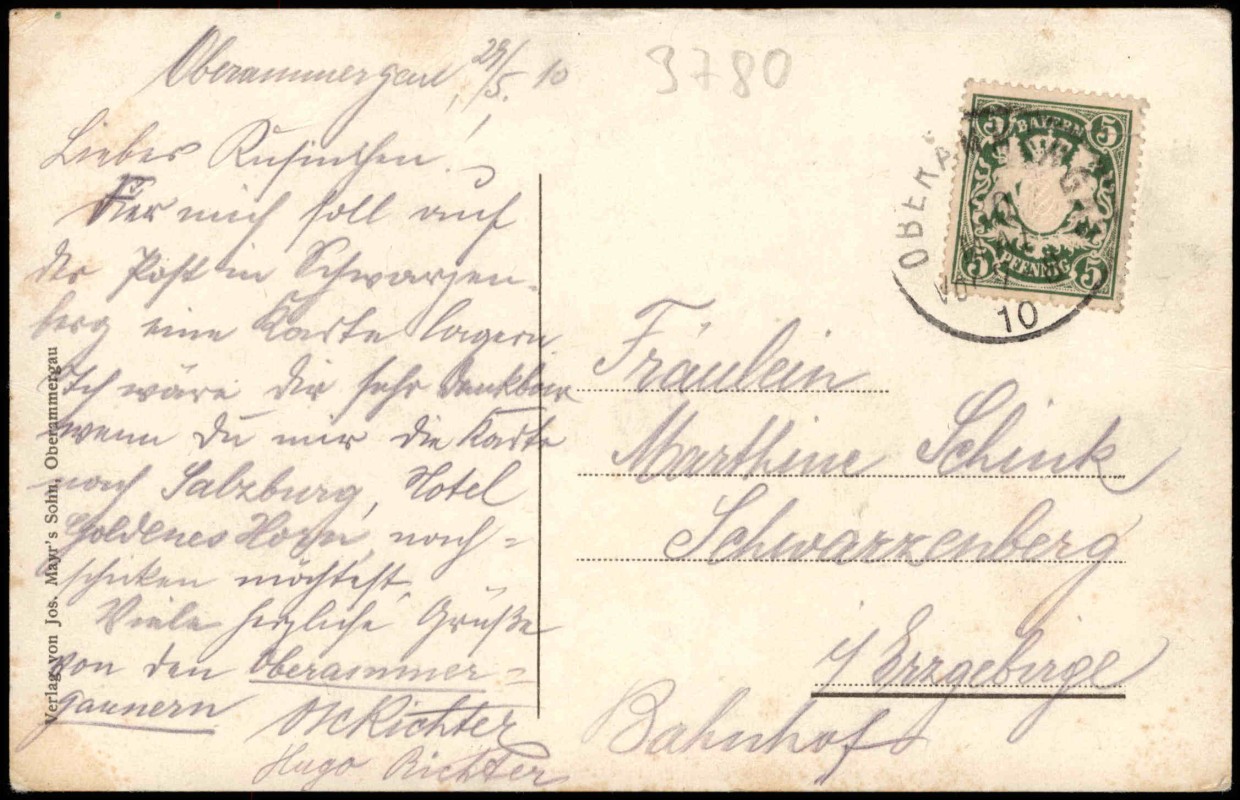 Oberammergau, 29/5. 10
3780
Liebes Rusinchen!
Für mich soll auf
der Post in Schwarzen-
berg eine Karte lagern
Ich wäre dir sehr dankbar
wenn du mir die Karte
nach Salzburg, Hotel
Goldenes Horn, nach=
schicken möchtest.
Viele herzliche Grüße
von den Oberammer=
gaunern
Richter
Hugo Richter
Verlag von Jos. Mayr's Sohn, Oberammergau
5 BAYERN 5
5 PFENNIG 5
OBERAMMERGAU
10
Fräulein
Marthine Schink
Schwarzenberg
i/ Erzgebirge
Bahnhof